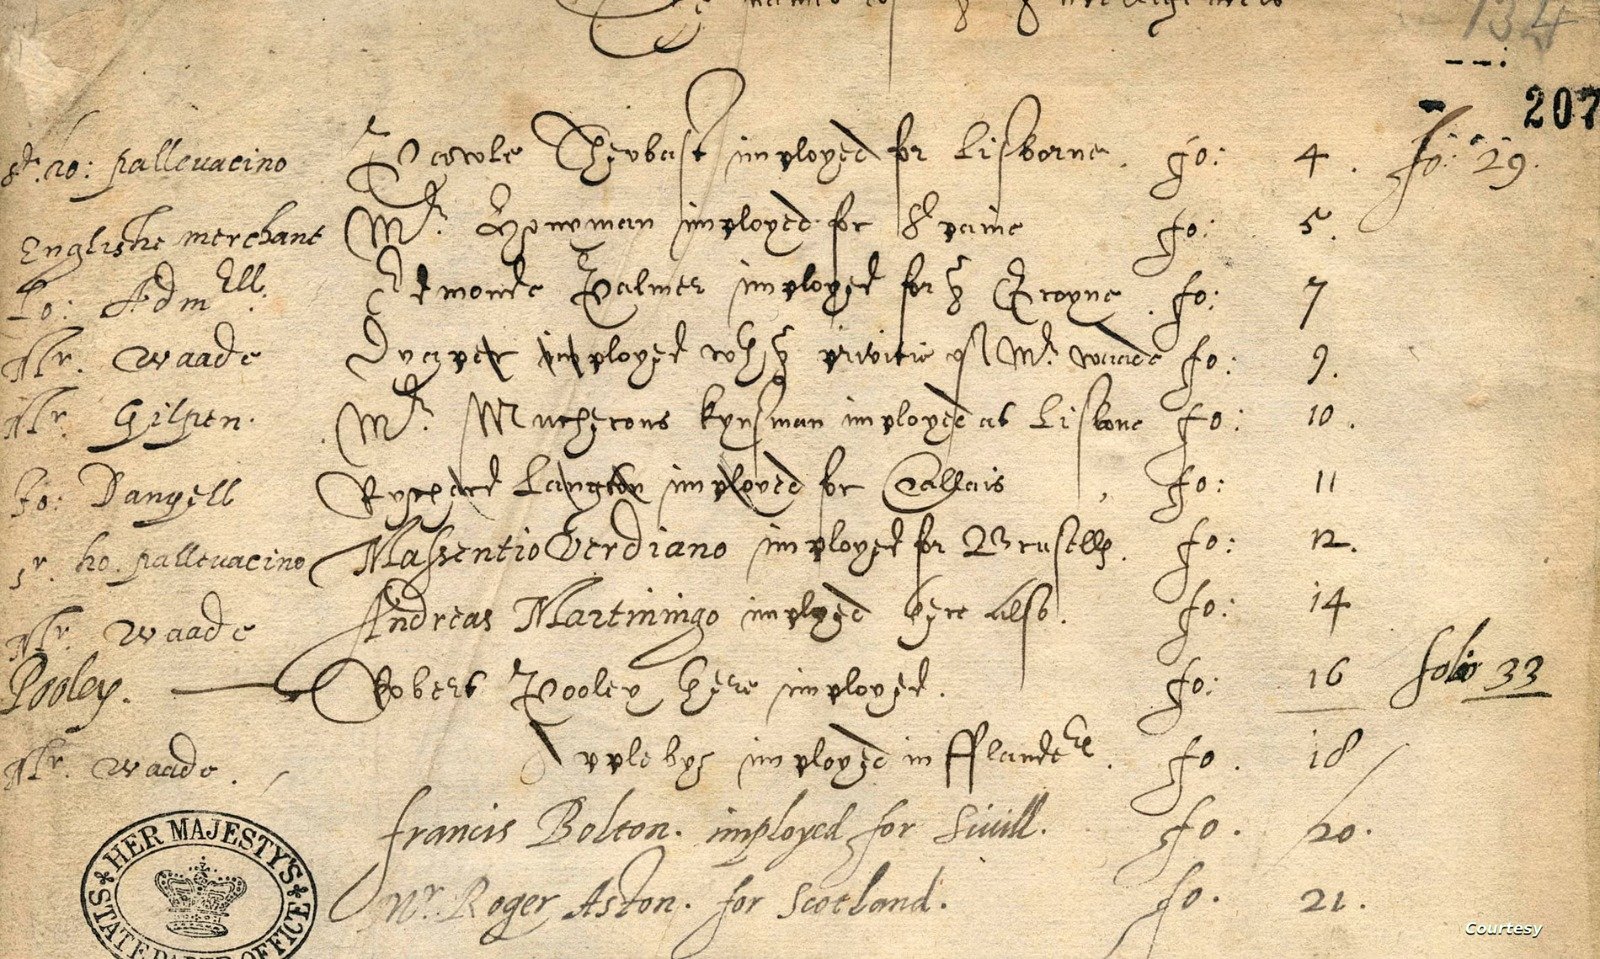 134
207
Sr. Ho: pallevacino Pawle Theobast imployed for Lisborne. fo: 4. fo: 29.
Englishe merchant Mr. Honyman imployed for Spaine fo: 5.
Lo: Admell. Edmonde Palmer imployed for ye Groyne. fo: 7
Mr. Waade Draper imployed wth ye privitie of Mr. Waade fo: 9.
Mr. Gilpen. Mr. Mucherons kynsman imployed at Lisbone fo: 10.
Jo: Danyell Rychard Langton imployed for Callais, fo: 11
Sr. ho. pallevacino Massentio Verdiano imployed for Brusells. fo: 12.
Mr. Waade Andreas Martiningo imployed here also. fo: 14
Pooley. Robert Pooley here imployed. fo: 16 folio 33
Mr. Waade. Appleby imployed in fflanders. fo. 18
francis Bolton. imployed for Sivill. fo. 20.
Mr. Roger Aston. for Scotland. fo. 21.
HER MAJESTY'S
STATE PAPER OFFICE
Courtesy